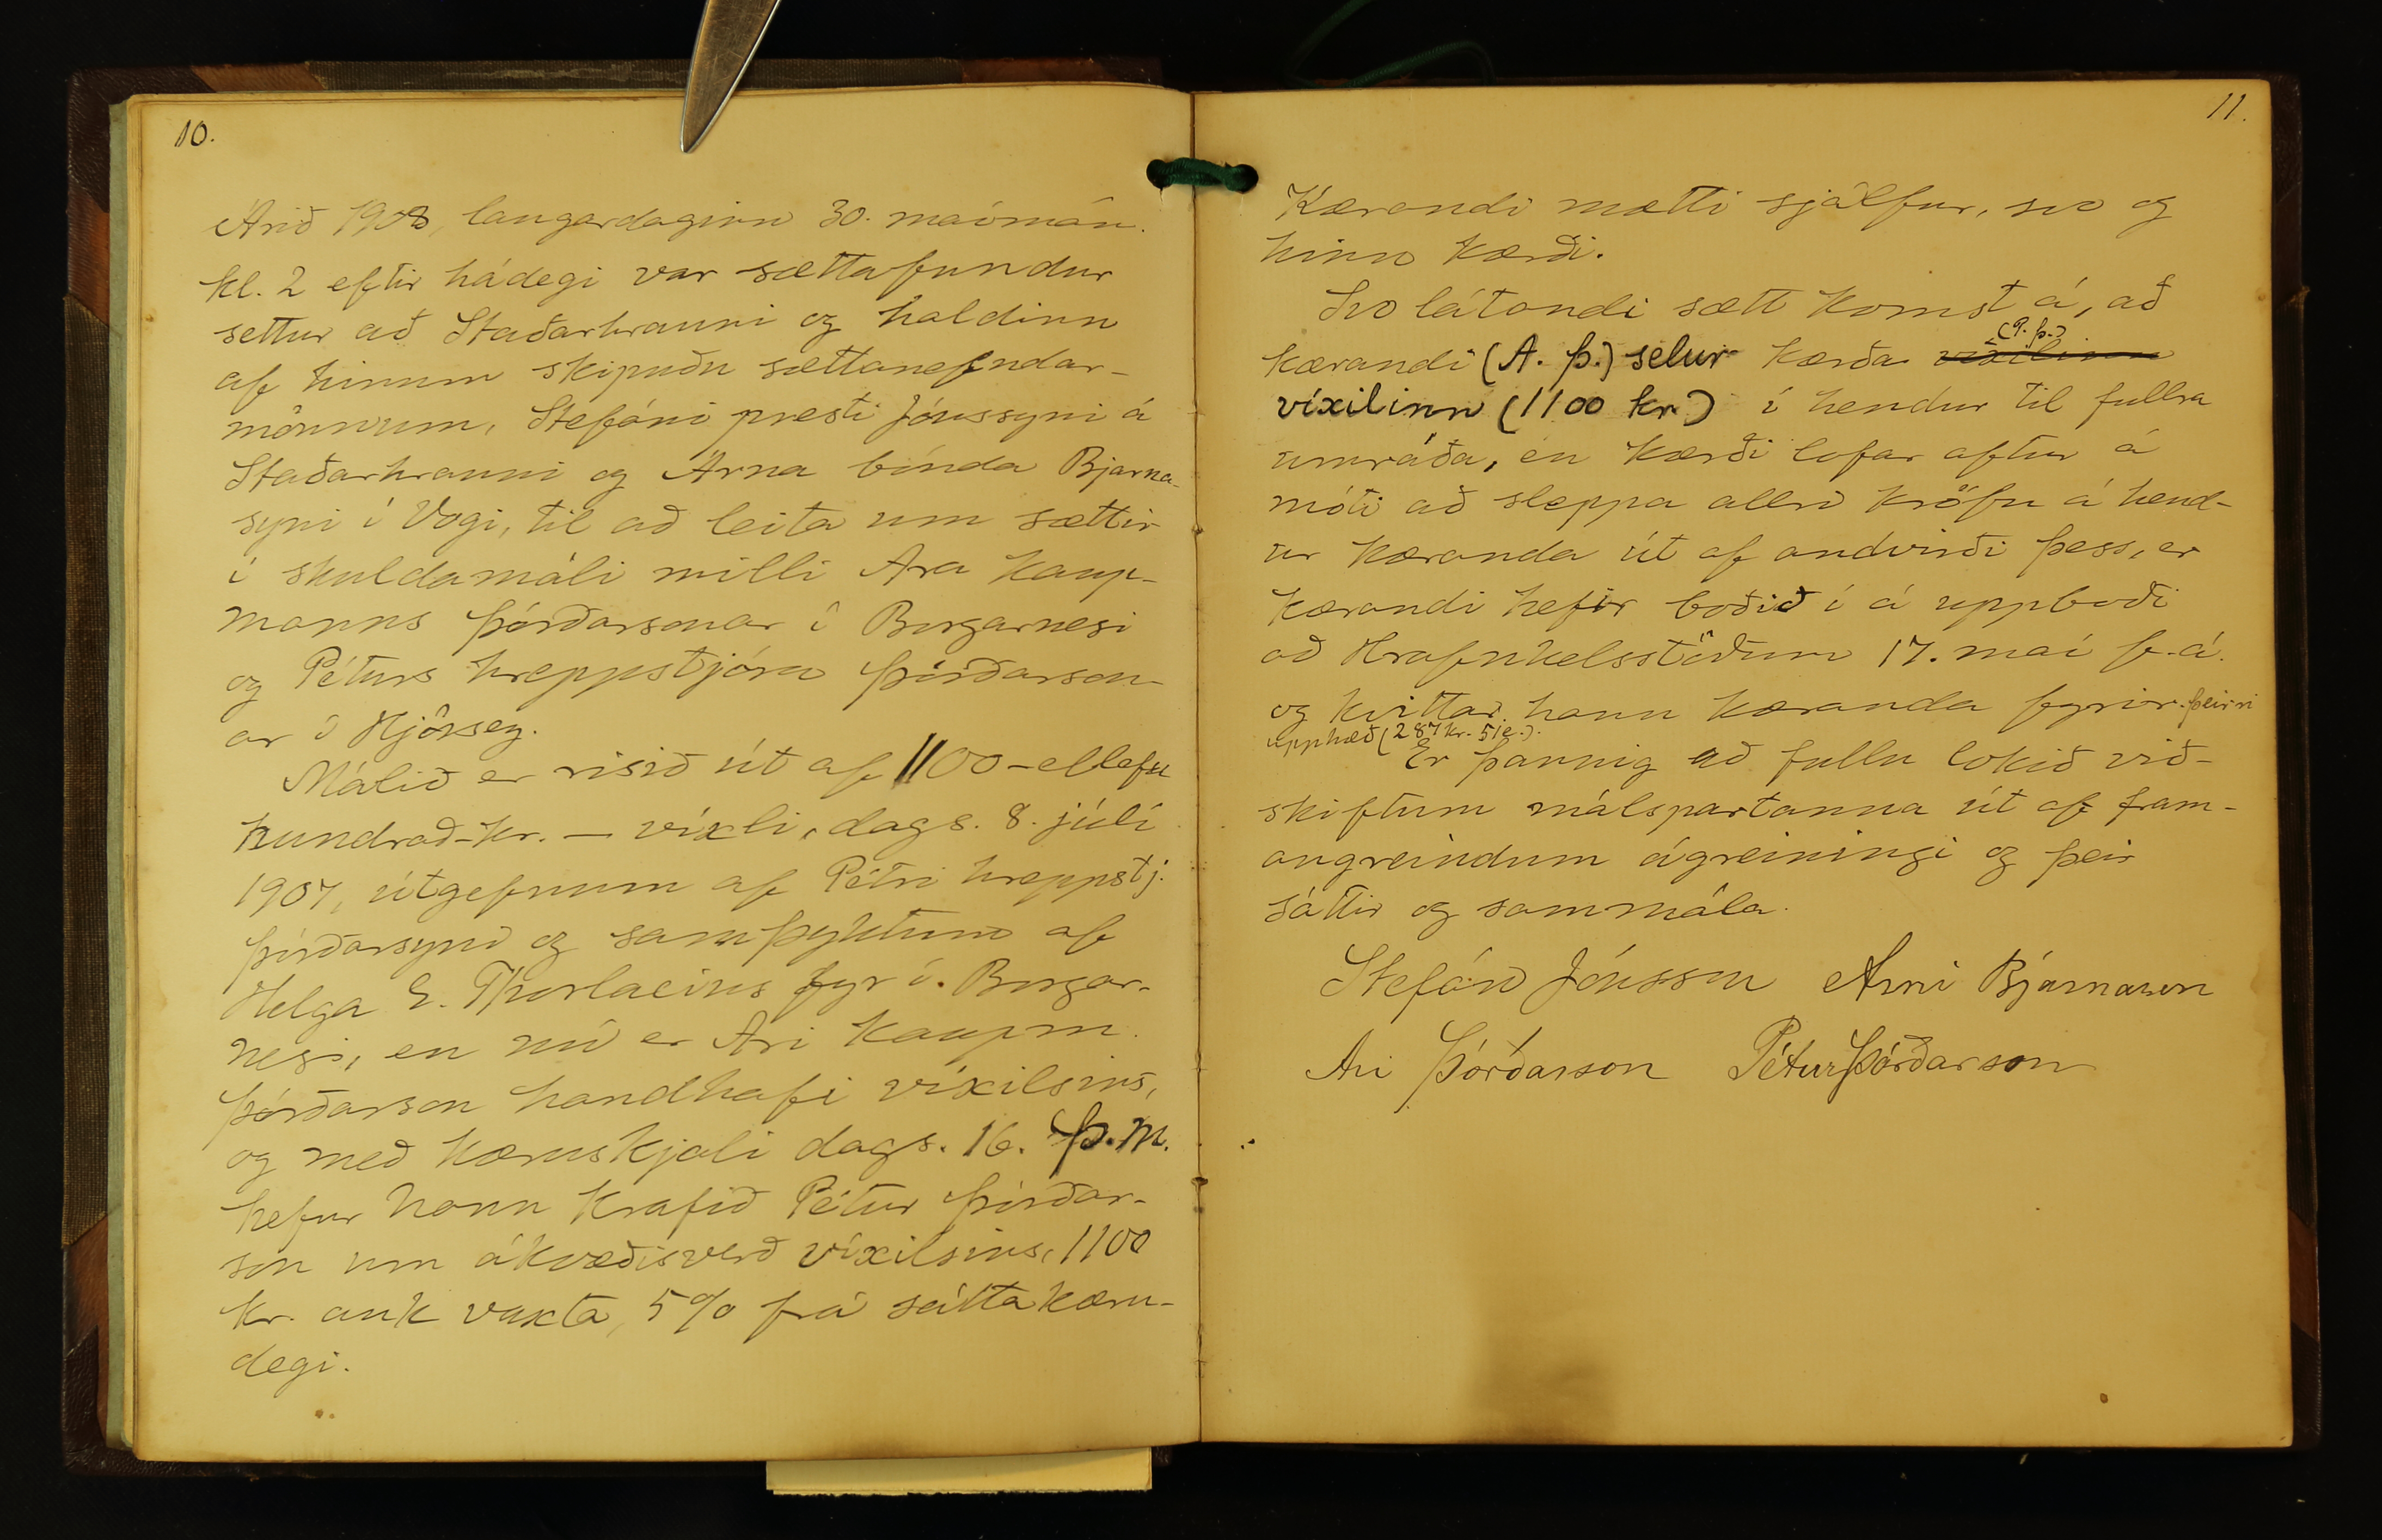 10.
Árið 1908, laugardaginn 30. maímán.
kl. 2 eftir hádegi var sættafundur
settur að Staðarhrauni og haldinn
af hinum skipuðu sættanefndar-
mönnum, Stefáni presti Jónssyni á
Staðarhrauni og Árna bónda Bjarna-
syni í Vogi, til að leita um sættir
í skuldamáli milli Ara kaup-
manns Þórðarsonar í Borgarnesi
og Péturs hreppstjóra Þórðarson-
ar í Hjörsey.
Málið er risið út af 1100 - ellefu
hundrað-kr. - víxli, dags. 8. júlí
1907, útgefnum af Pétri hreppstj.
Þórðarsyni og samþyktum af
Helga E. Thorlacius fyr í Borgar-
nesi, en nú er Ari kaupm.
Þórðarson handhafi víxilsins,
og með kæruskjali dags. 16. þ.m.
hefur hann krafið Pétur Þórðar-
son um ákvæðisverð víxilsins, 1100
kr. auk vaxta, 5% frá sáttakæru-
degi.
11.
Kærandi mætti sjálfur, svo og
hinn kærði.
Svo látandi sætt komst á, að
kærandi (A. Þ.) selur kærða víxilinn (P. Þ.)
víxilinn (1100 kr.) í hendur til fullra
umráða, en kærði lofar aftur á
móti að sleppa allri kröfu á hend-
ur kæranda út af andvirði þess, er
kærandi hefir boðið í á uppboði
að Hrafnkelsstöðum 17. maí f.á.
og kvittar hann kæranda fyrir þeirri
upphæð (287 kr. 51 e.).
Er þannig að fullu lokið við-
skiftum málspartanna út af fram-
angreindum ágreiningi og þeir
sáttir og sammála.
Stefán Jónsson Árni Bjarnason
Ari Þórðarson Pétur Þórðarson